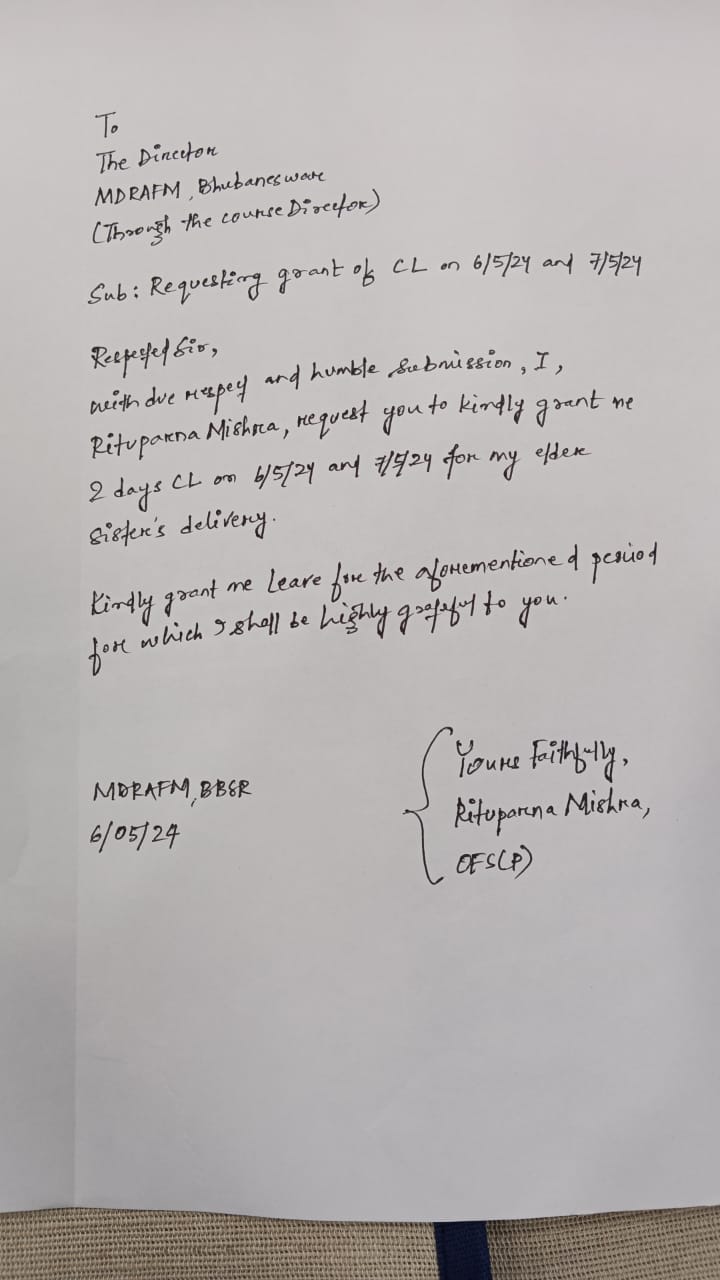 To
The Director
MDRAFM, Bhubaneswar
(Through the course Director)
Sub: Requesting grant of CL on 6/5/24 and 7/5/24
Respected Sir,
with due respect and humble submission, I,
Rituparna Mishra, request you to kindly grant me
2 days CL on 6/5/24 and 7/5/24 for my elder
sister's delivery.
Kindly grant me leave for the aforementioned period
for which I shall be highly grateful to you.
MDRAFM, BBSR
6/05/24
Yours Faithfully,
Rituparna Mishra,
OFS(P)